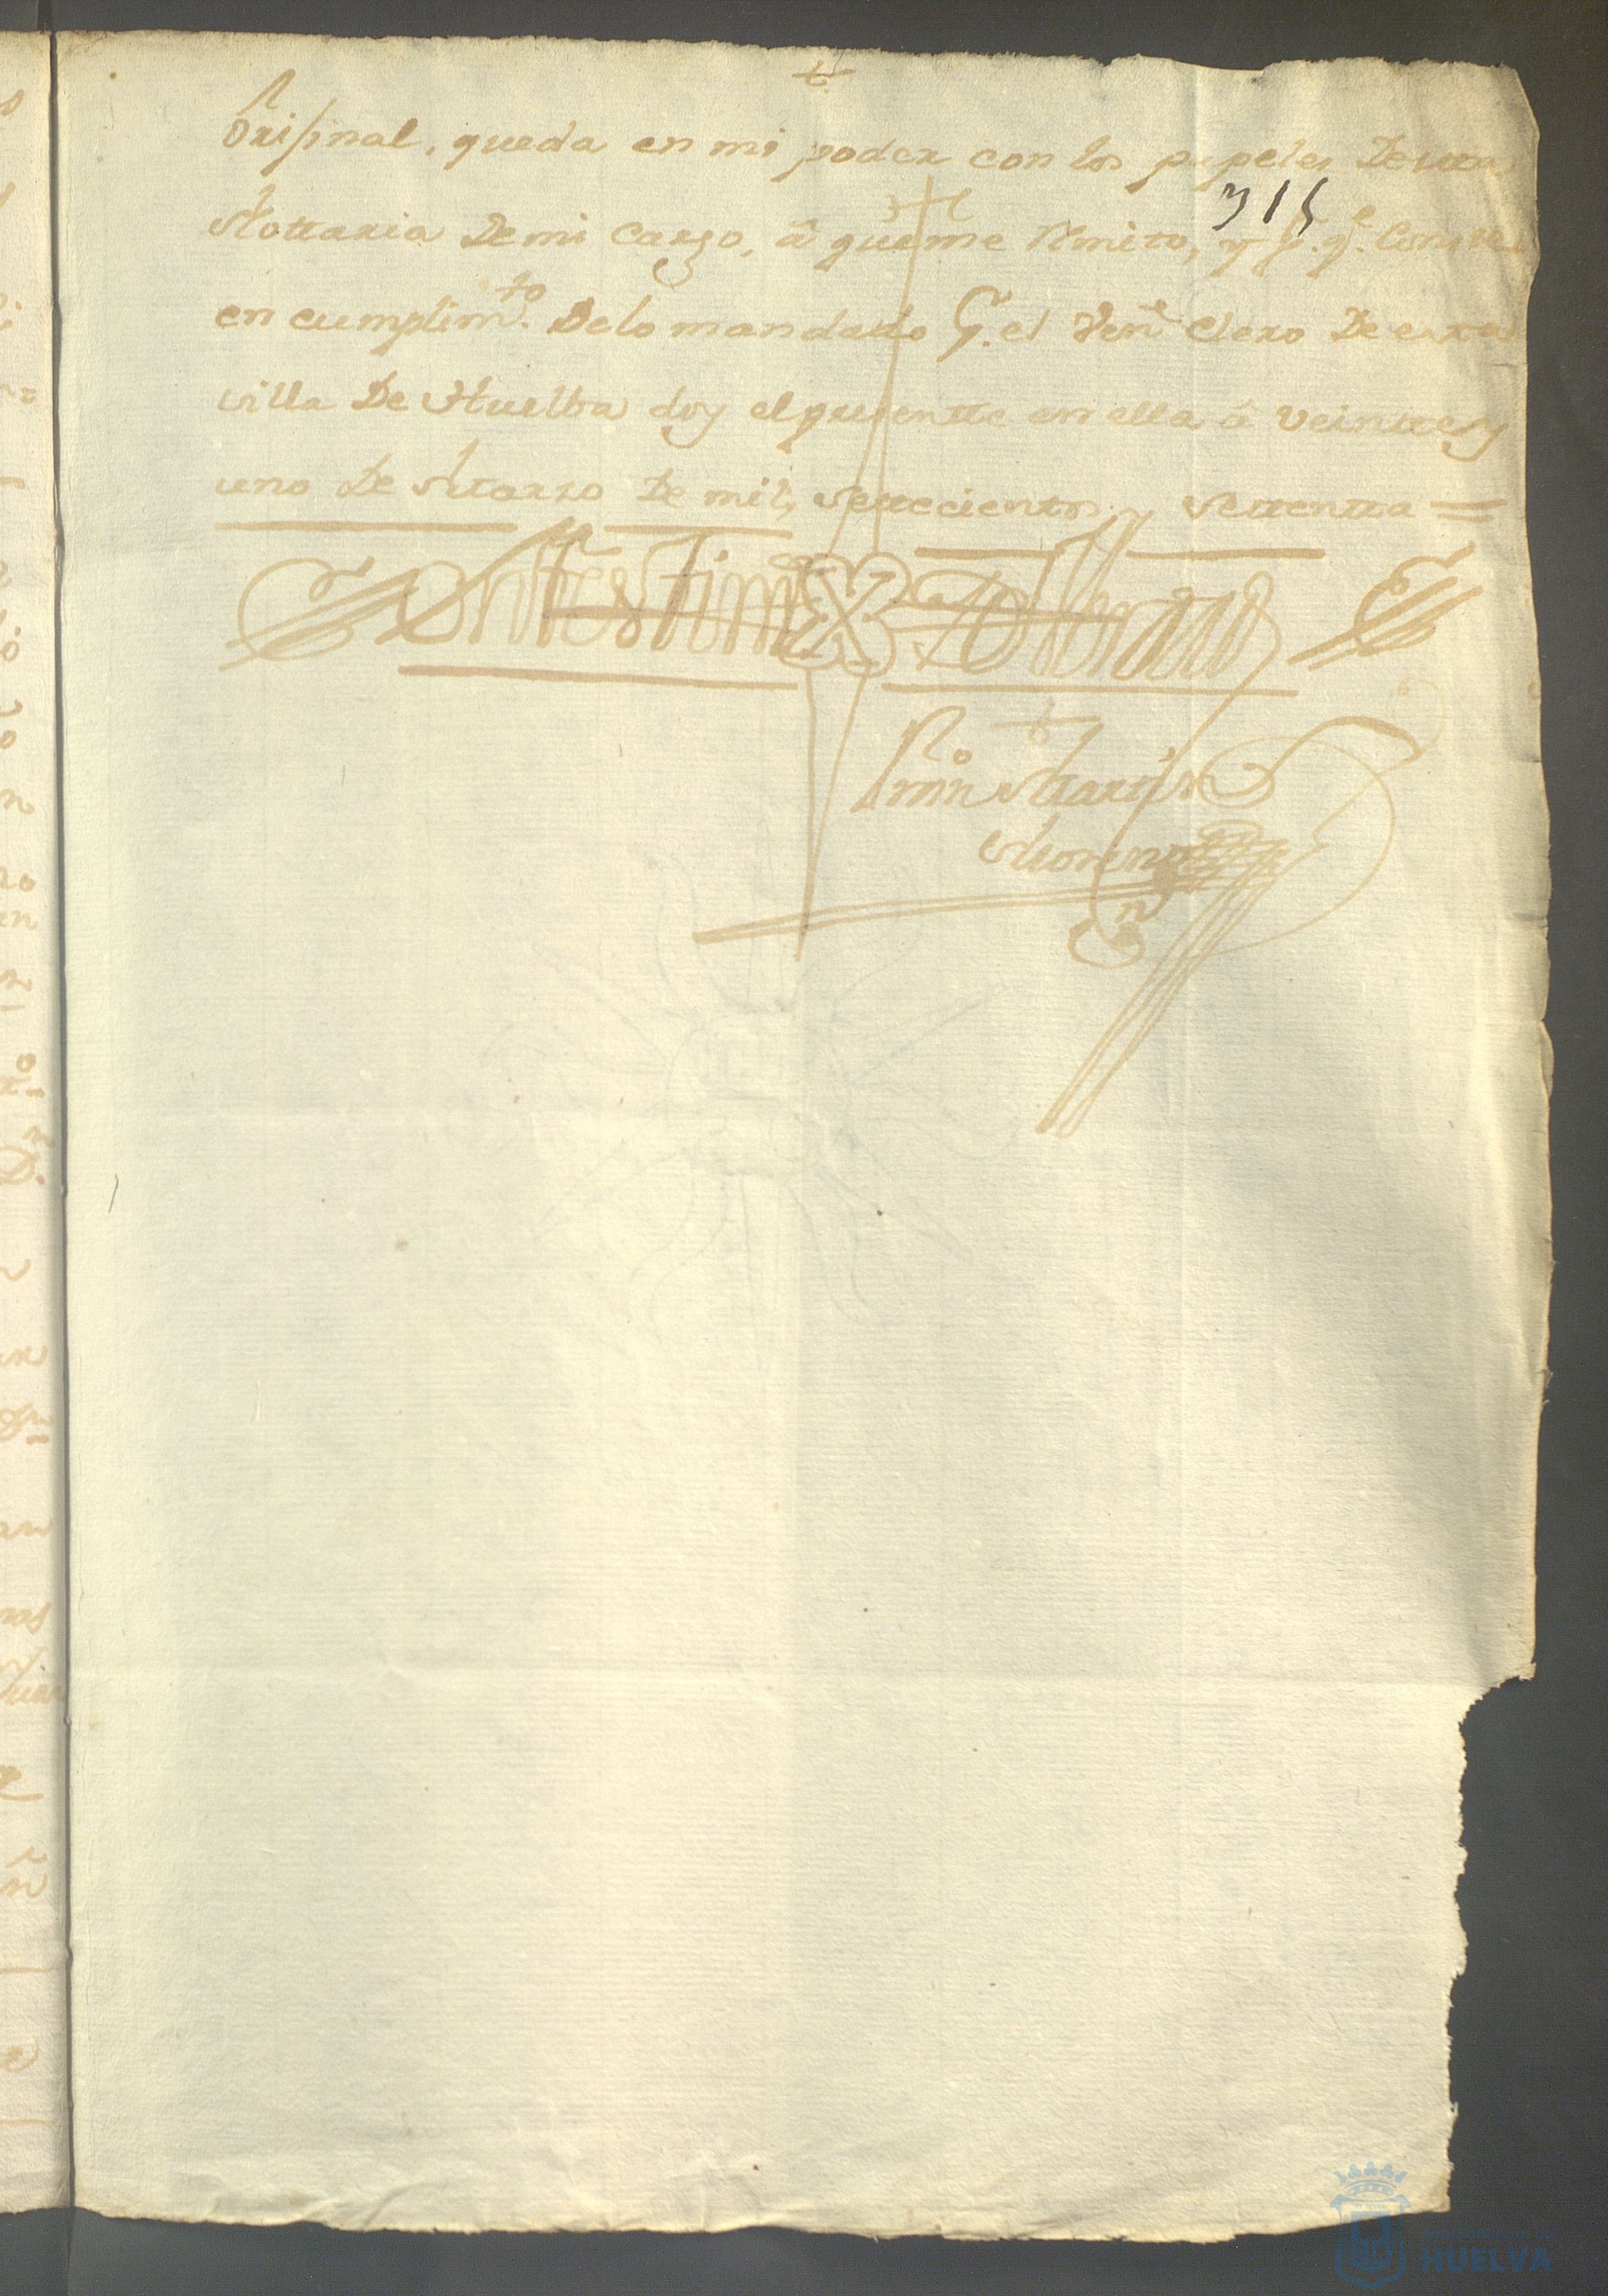 Orijinal, queda en mi poder con los papeles De esta
315
Nottaria De mi Cargo, â que me Rmito, y p.ª q.e Conste
en cumplim.to Delo mandado P. el Ven.e Clero De esta
villa De Huelba doy el presentte en ella â veintte y
uno De Marzo De mil, Settecientos y Settentta =
En testim.o De verdad
Marttin
Moreno
HUELVA